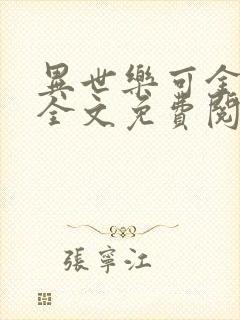 異世樂可全
全文免費閱
張寧江